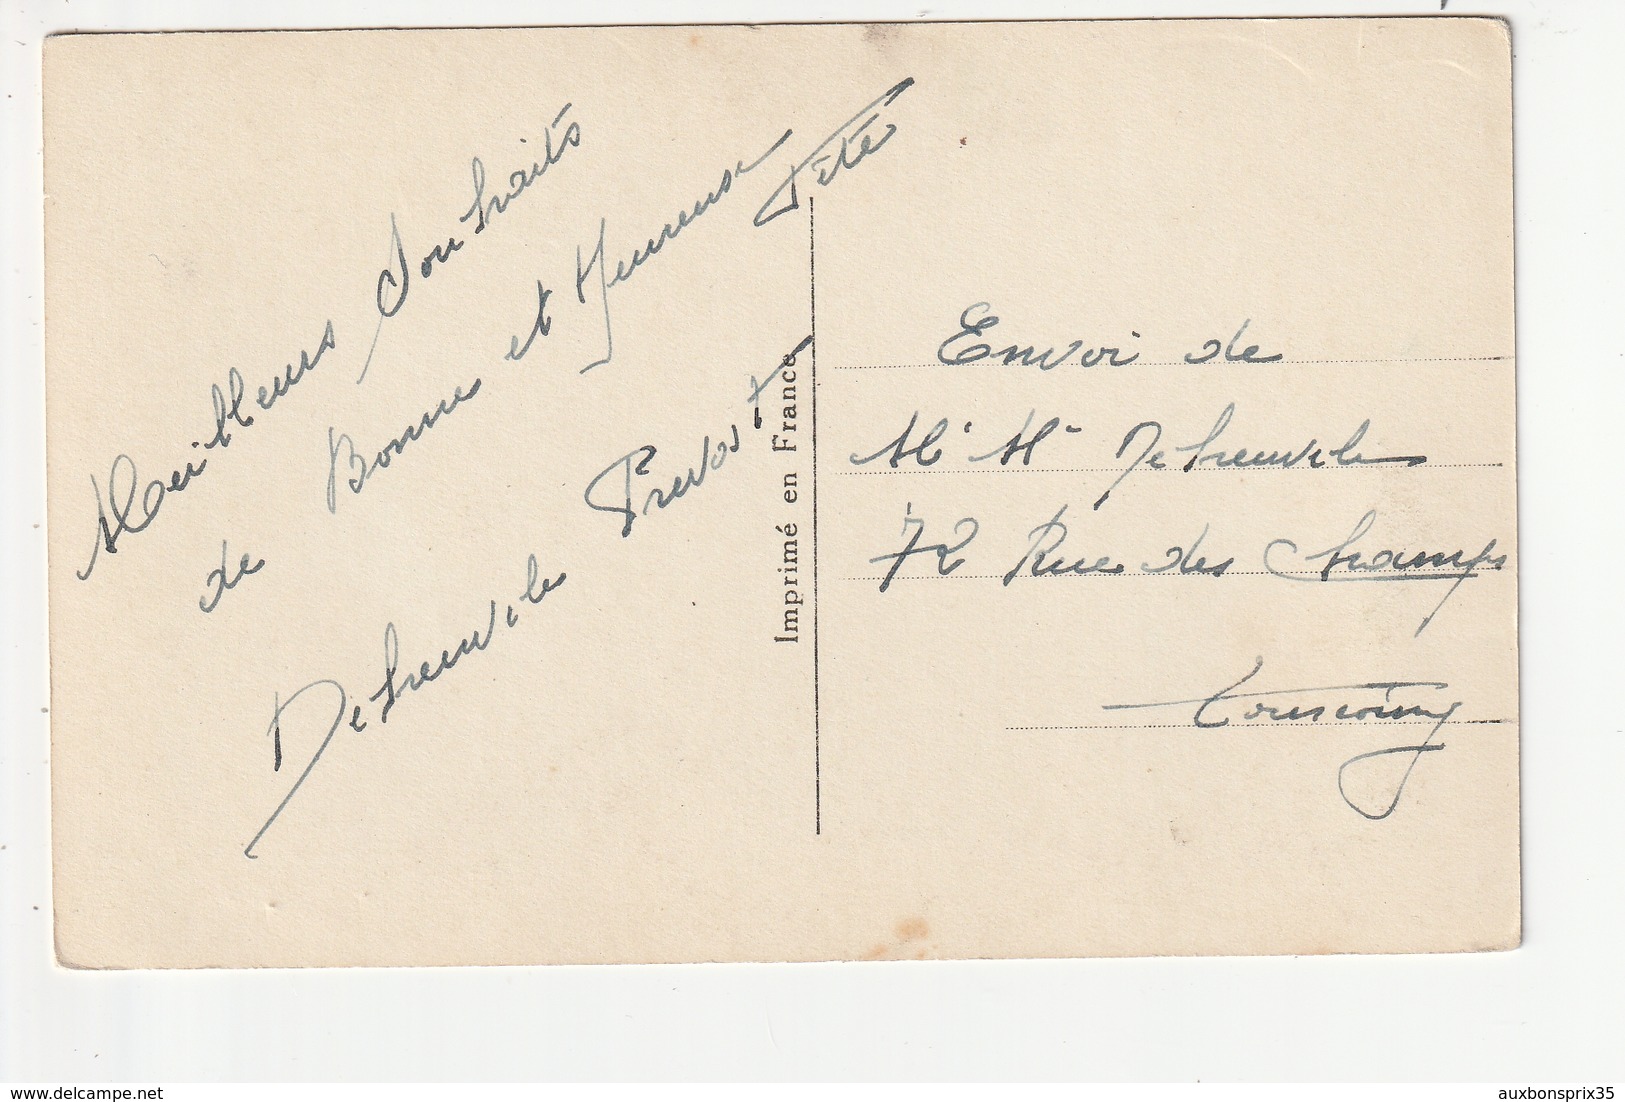 Meilleurs Souhaits
de Bonne et Heureuse Fête
Dehreuvile Prevost
Imprimé en France
Envoi de
Mr Me Dehreuvile
72 Rue des Champs
Tourcoing
www.delcampe.net
auxbonsprix35